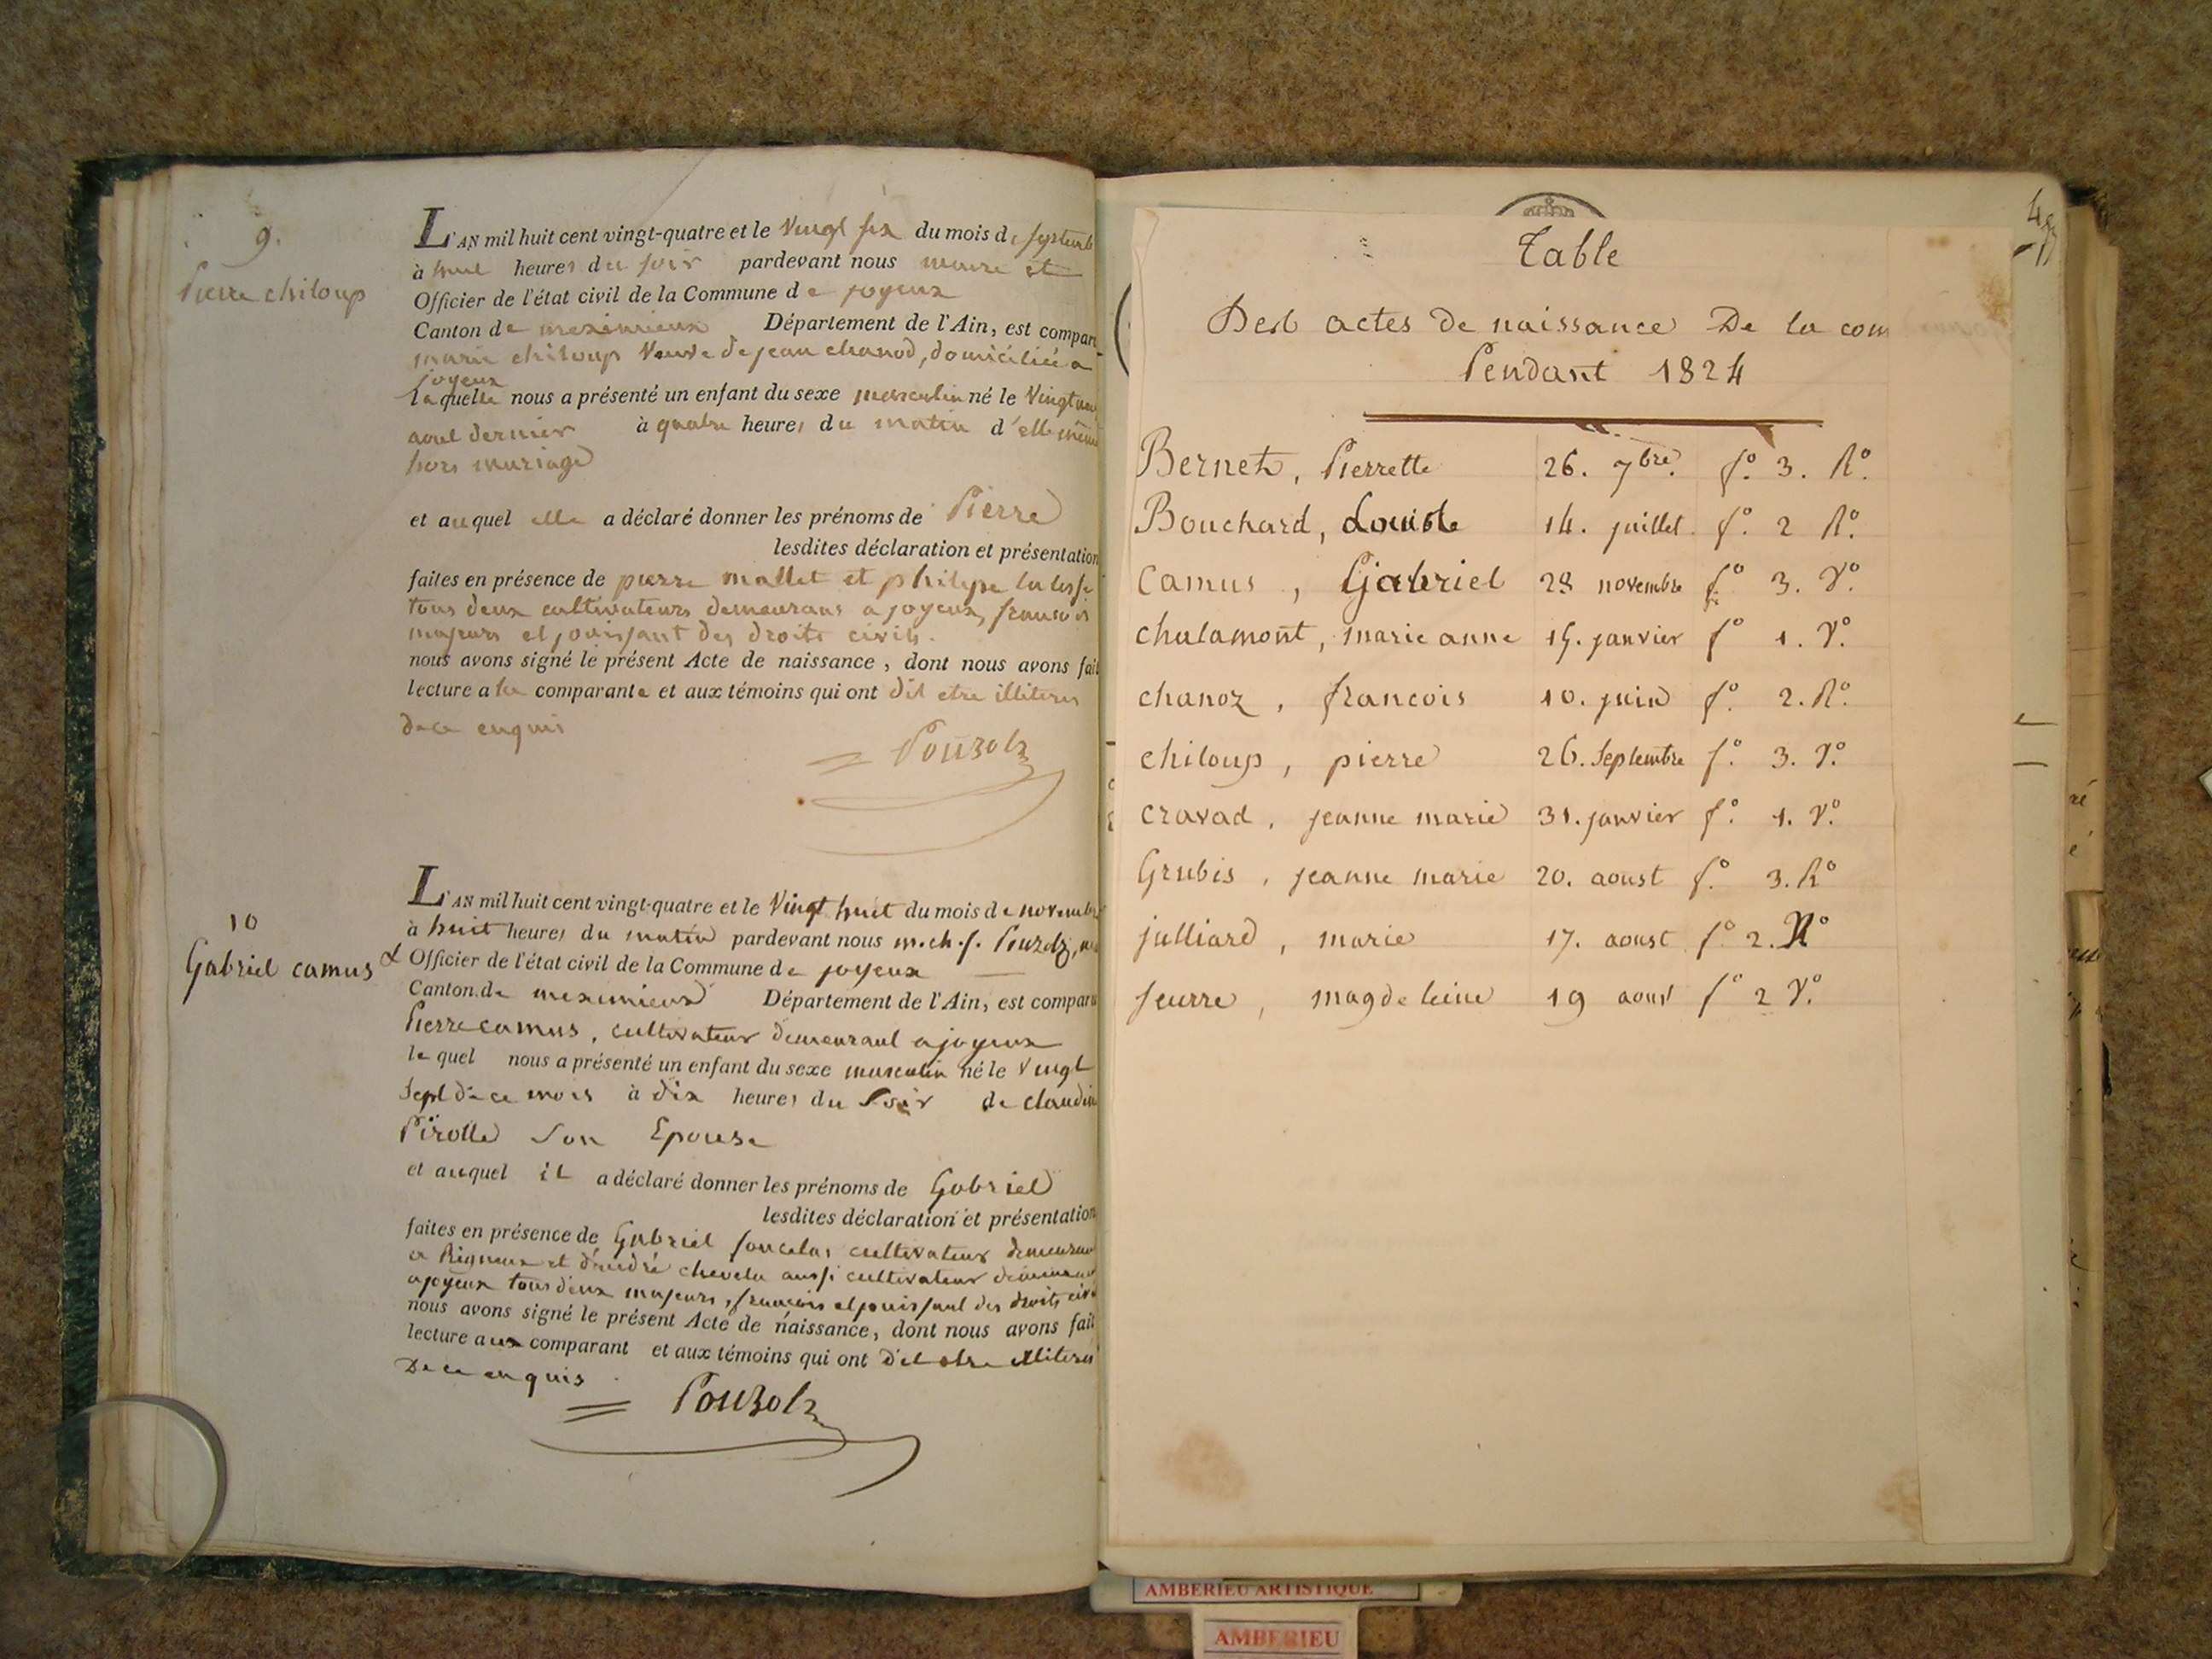 9.
Pierre chiloup
L'AN mil huit cent vingt-quatre et le Vingt six du mois de septemb
à huit heures du soir pardevant nous maire et
Officier de l'état civil de la Commune de joyeux
Canton de meximieux Département de l'Ain, est compar
marie chiloup Veuve de jean chanod, domiciliée a
joyeux
laquelle nous a présenté un enfant du sexe masculin né le Vingt
aout dernier à quatre heures du matin d'elle même
hors mariage
et auquel elle a déclaré donner les prénoms de Pierre
lesdites déclaration et présentation
faites en présence de pierre mallet et philipe
tous deux cultivateurs demeurans a joyeux, francois
majeurs et jouissant des droits civils.
nous avons signé le présent Acte de naissance, dont nous avons fait
lecture a la comparante et aux témoins qui ont dit etre illiteres
de ce enquis
Pouzolz
10
Gabriel camus
L'AN mil huit cent vingt-quatre et le Vingt huit du mois de novembre
à huit heures du matin pardevant nous m. ch. f. Pouzolz,
& Officier de l'état civil de la Commune de joyeux
Canton de meximieux Département de l'Ain, est comparu
Pierre camus, cultivateur demeurant a joyeux
lequel nous a présenté un enfant du sexe masculin né le Vingt
Sept de ce mois à dix heures du Soir de claudin
Pirolle Son Epouse
et auquel il a déclaré donner les prénoms de Gabriel
lesdites déclaration et présentation
faites en présence de Gabriel cultivateur demeurant
a Rigneux et d'andré chevelu aussi cultivateur demeurant
a joyeux tous deux majeurs, francois et jouissant des droits civi
nous avons signé le présent Acte de naissance, dont nous avons fait
lecture aux comparant et aux témoins qui ont dit etre illiteres
De ce enquis
Pouzolz
Table
Des actes de naissance De la com
Pendant 1824
Bernet, Pierrette 26. 7bre. fo. 3. Ro.
Bouchard, Louise 14. juillet. fo. 2 Ro.
Camus, Gabriel 28 novembre fo 3. Vo.
chalamont, marie anne 15. janvier fo 1. Vo.
chanoz, francois 10. juin fo. 2. Ro.
chiloup, pierre 26. Septembre fo. 3. Vo.
cravad, jeanne marie 31. janvier fo. 1. Vo.
Grubis, jeanne marie 20. aoust fo. 3. Ro
julliard, marie 17. aoust fo 2. Ro
feurre, magdeleine 19 aoust fo 2 Vo.
AMBERIEU ARTISTIQUE
AMBERIEU